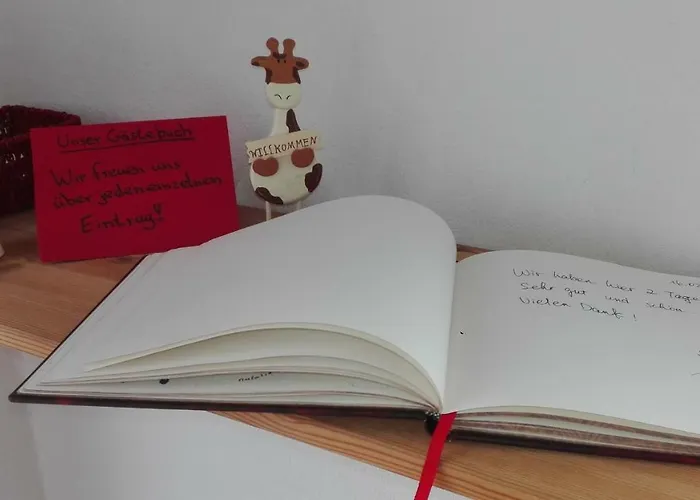 Unser Gästebuch
Wir freuen uns
über jeden einzelnen
Eintrag!
WILLKOMMEN
16.0
Wir haben hier 2 Tage
Sehr gut und schön
Vielen Dank!